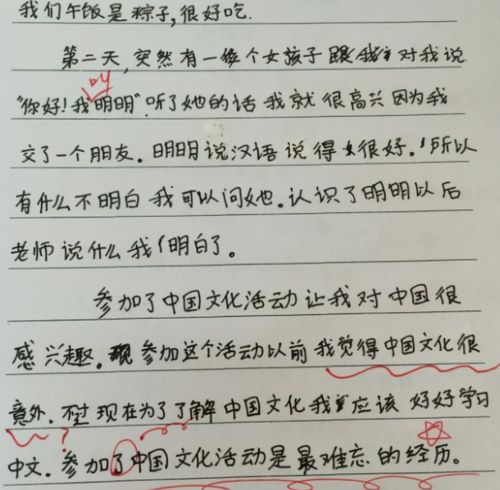 我们午饭是粽子,很好吃.
第二天,突然有一个女孩子跟我对我说
"你好!我叫明明".听了她的话我就很高兴因为我
交了一个朋友.明明说汉语说得很好.所以
有什么不明白我可以问她.认识了明明以后
老师说什么我明白了。
参加了中国文化活动让我对中国很
感兴趣.参加这个活动以前我觉得中国文化很
意外.不过现在为了了解中国文化我应该好好学习
中文.参加了中国文化活动是最难忘的经历。